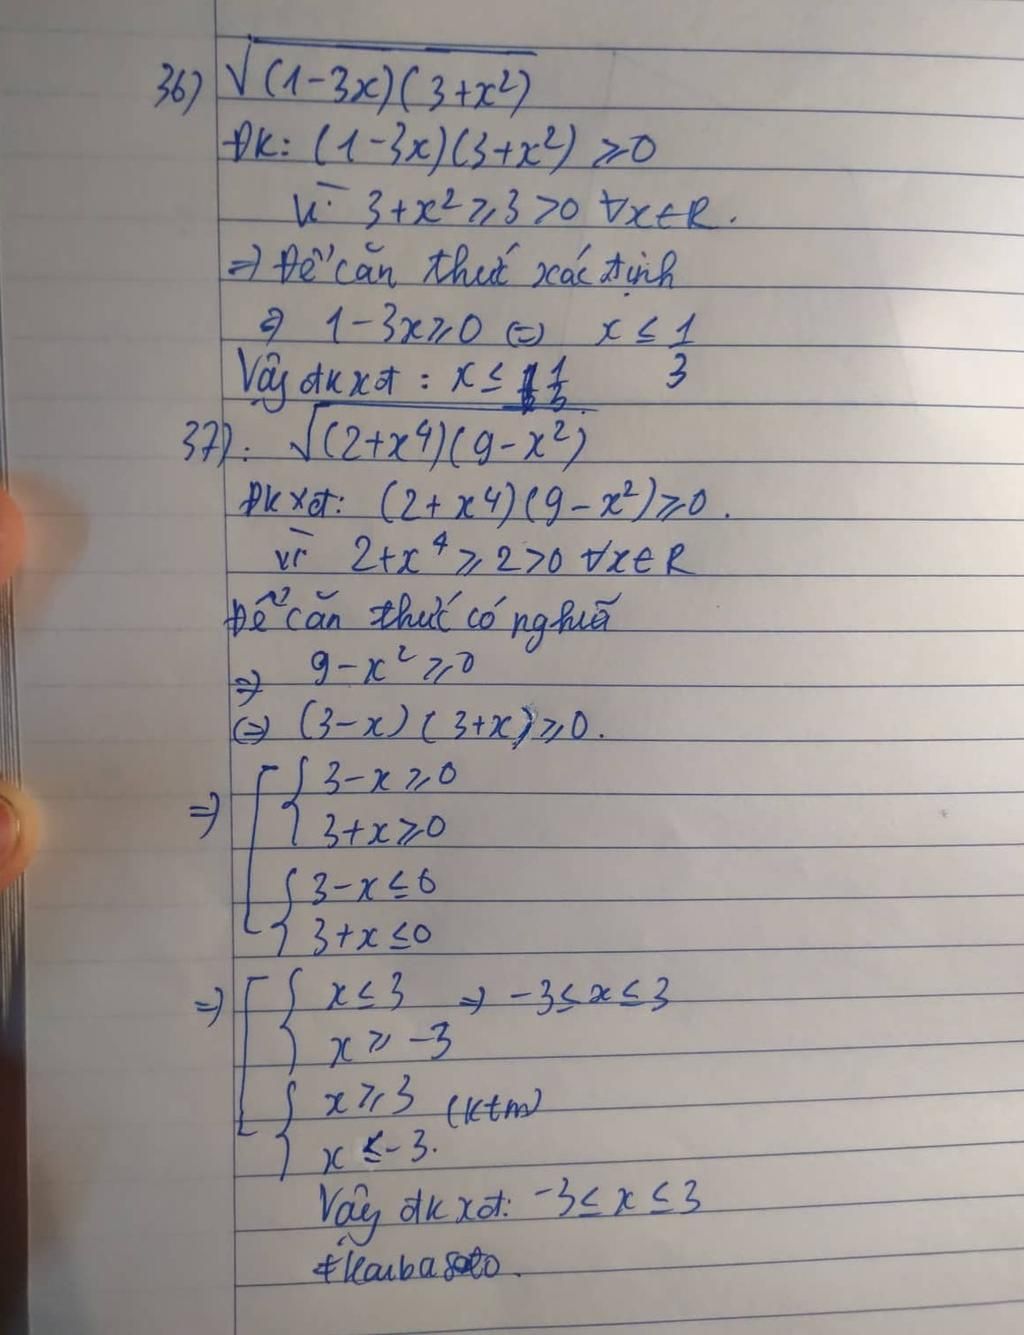 36) √(1-3x)(3+x²)
ĐK: (1-3x)(3+x²) ⩾0
Vì 3+x² ⩾ 3 >0 ∀x∈R.
=> Để căn thức xác định
=> 1-3x⩾0 (=) x ≤ 1/3
Vậy đkxđ : x ≤ 1/3.
37): √(2+x⁴)(9-x²)
ĐKXĐ: (2+x4)(9-x²)⩾0.
vì 2+x⁴ ⩾ 2>0 ∀x∈R
Để căn thức có nghĩa
=> 9-x² ⩾0
(=) (3-x)(3+x)⩾0.
=> [ { 3-x ⩾0
3+x ⩾0
{ 3-x ≤ 0
3+x ≤0
=> [ { x ≤ 3 => -3≤x≤3
x ⩾ -3
{ x ⩾ 3 (ktm)
x ≤ -3.
Vậy đkxđ: -3≤ x ≤ 3